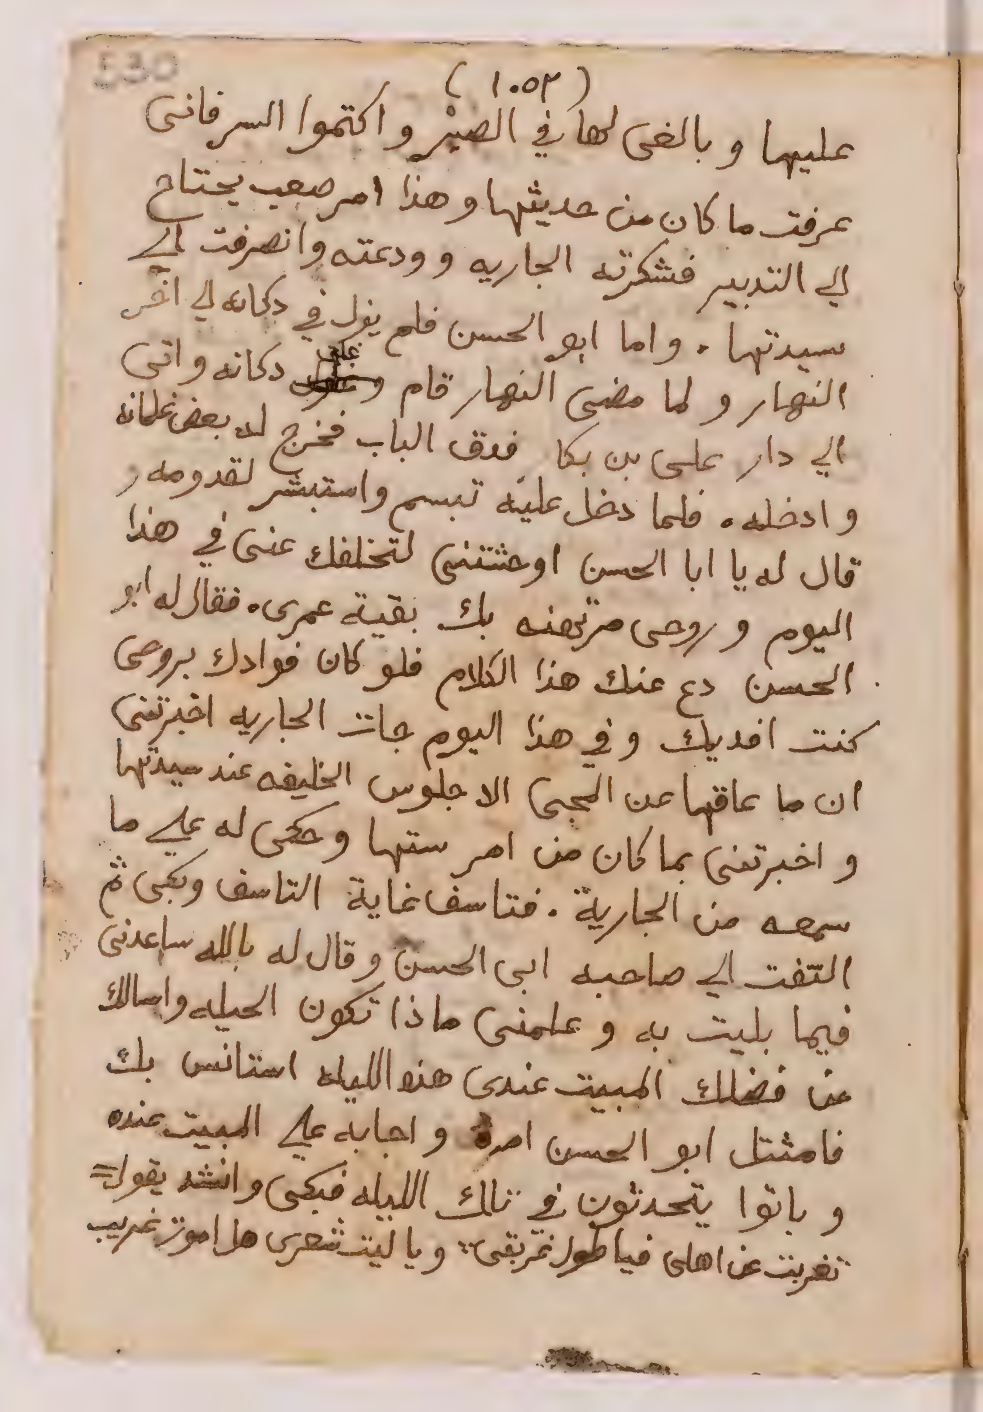 530
(١٠٥٢)
عليها وبالغى لها في الصبر واكتموا السر فانى
عرفت ما كان من حديثها وهذا امر صعب يحتاج
الي التدبير فشكرته الجاريه وودعته وانصرفت الي
سيدتها . واما ابو الحسن فلم يزل في دكانه الي اخر
النهار ولما مضى النهار قام و غلق دكانه واتى
الي دار على بن بكا فدق الباب فخرج له بعض غلمانه
وادخله . فلما دخل عليه تبسم واستبشر لقدومه و
قال له يا ابا الحسن اوحشتنى لتخلفك عنى في هذا
اليوم وروحى مرتهنه بك بقية عمرى . فقال له ابو
الحسن دع عنك هذا الكلام فلو كان فوادك بروحى
كنت افديك وفي هذا اليوم جات الجاريه اخبرتنى
ان ما عاقها عن المجى الا جلوس الخليفه عند سيدتها
واخبرتنى بما كان من امر ستها وحكى له علي ما
سمعه من الجارية . فتاسف غاية التاسف وبكى ثم
التفت الي صاحبه ابى الحسن وقال له بالله ساعدنى
فيما بليت به وعلمنى ماذا تكون الحيله واسالك
من فضلك المبيت عندى هذه الليله استانس بك
فامتثل ابو الحسن امره واجابه علي المبيت عنده
وباتوا يتحدثون في تلك الليله فبكى وانشد يقول =
تغربت عن اهلى فيا طول غربتى ويا ليت شعرى هل اموت غريب